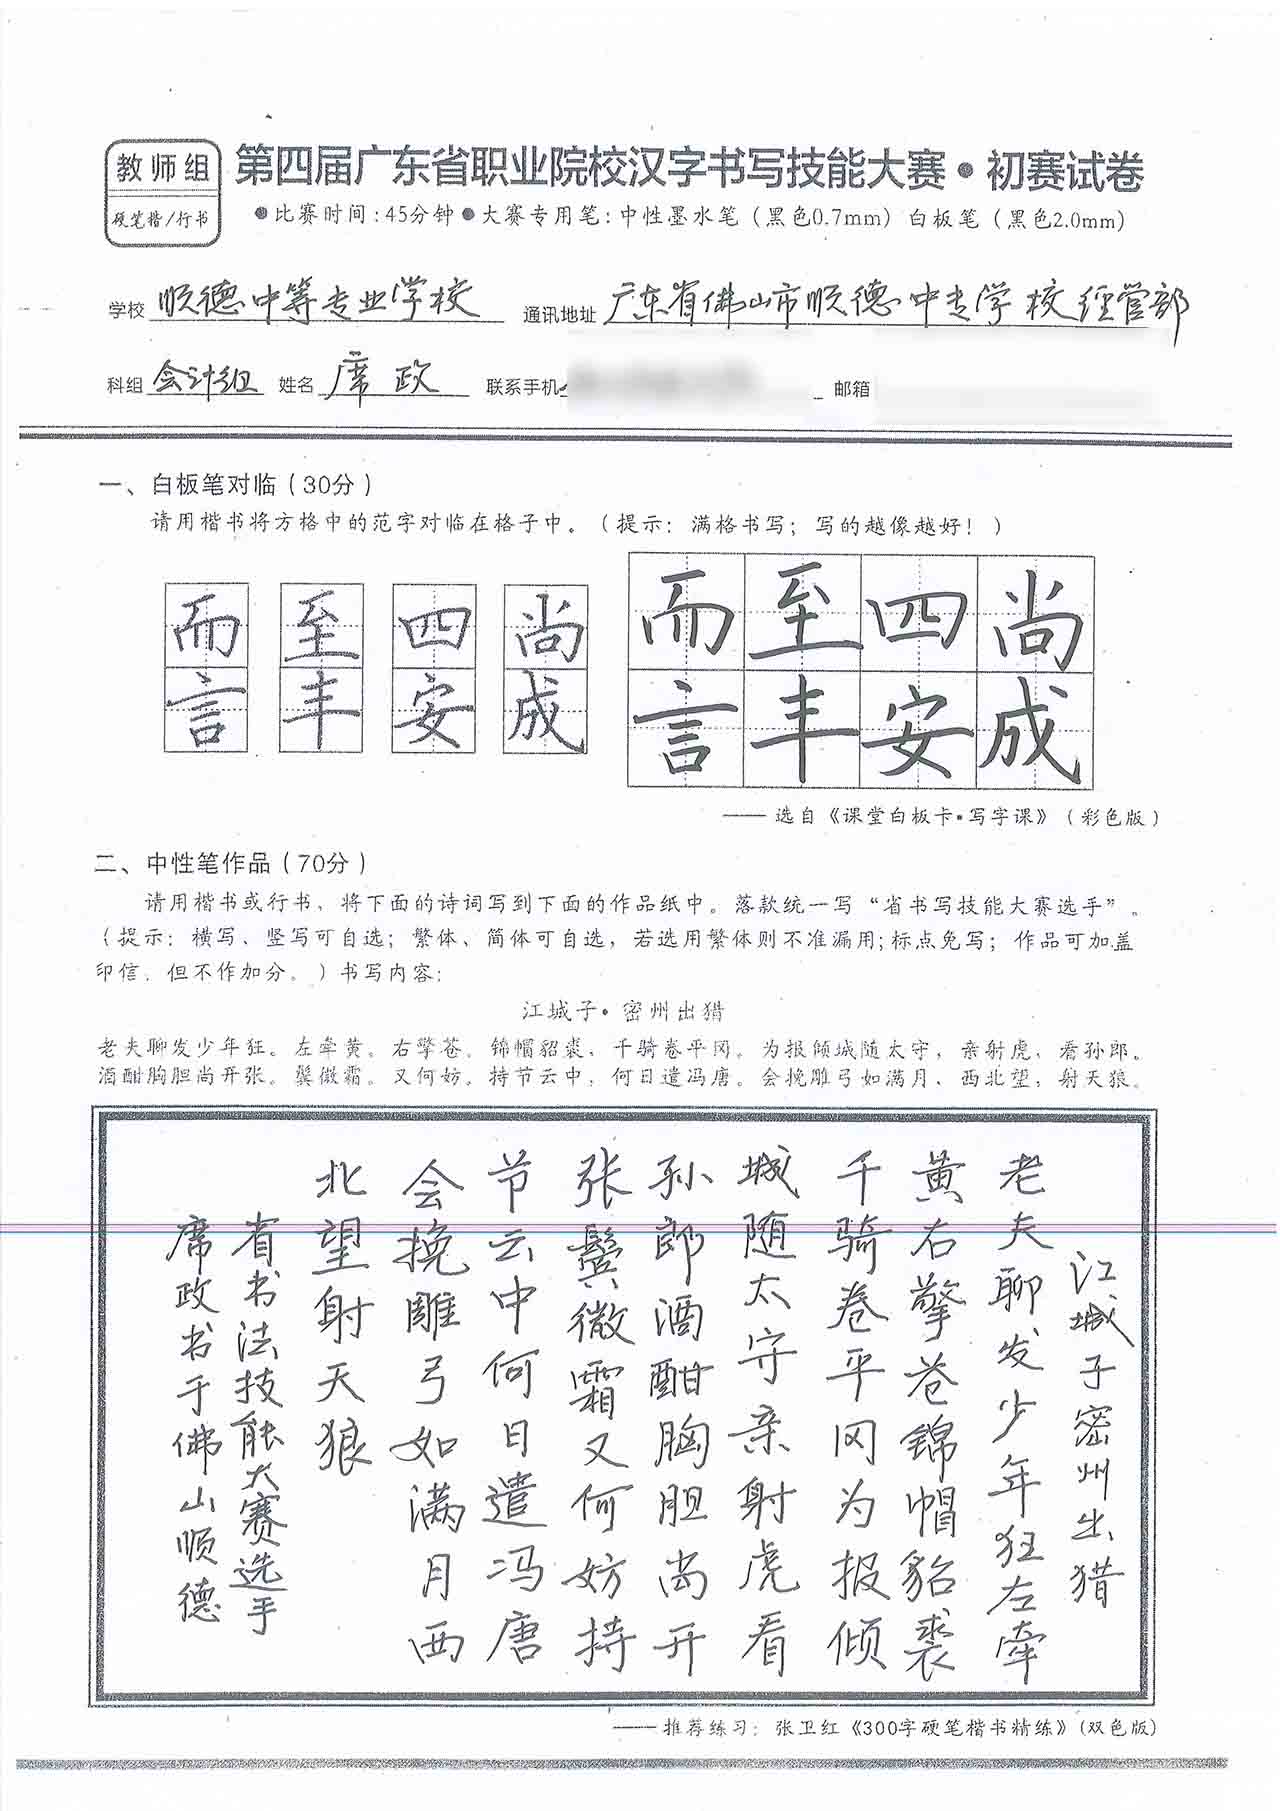 教师组
硬笔楷/行书
第四届广东省职业院校汉字书写技能大赛•初赛试卷
●比赛时间:45分钟●大赛专用笔:中性墨水笔（黑色0.7mm）白板笔（黑色2.0mm）
学校 顺德中等专业学校 通讯地址 广东省佛山市顺德中专学校经管部
科组 会计组 姓名 席政 联系手机 邮箱
一、白板笔对临（30分）
请用楷书将方格中的范字对临在格子中。（提示：满格书写；写的越像越好！）
而 至 四 尚 而至四尚
言 丰 安 成 言丰安成
——选自《课堂白板卡•写字课》（彩色版）
二、中性笔作品（70分）
请用楷书或行书、将下面的诗词写到下面的作品纸中。落款统一写“省书写技能大赛选手”。
（提示：横写、竖写可自选；繁体、简体可自选，若选用繁体则不准漏用;标点免写；作品可加盖
印信，但不作加分。）书写内容：
江城子•密州出猎
老夫聊发少年狂。左牵黄。右擎苍。锦帽貂裘、千骑卷平冈。为报倾城随太守，亲射虎，看孙郎。
酒酣胸胆尚开张。鬓微霜。又何妨。持节云中，何日遣冯唐。会挽雕弓如满月、西北望，射天狼。
江城子密州出猎
老夫聊发少年狂左牵
黄右擎苍锦帽貂裘
千骑卷平冈为报倾
城随太守亲射虎看
孙郎酒酣胸胆尚开
张鬓微霜又何妨持
节云中何日遣冯唐
会挽雕弓如满月西
北望射天狼
省书法技能大赛选手
席政书于佛山顺德
——推荐练习：张卫红《300字硬笔楷书精练》(双色版)